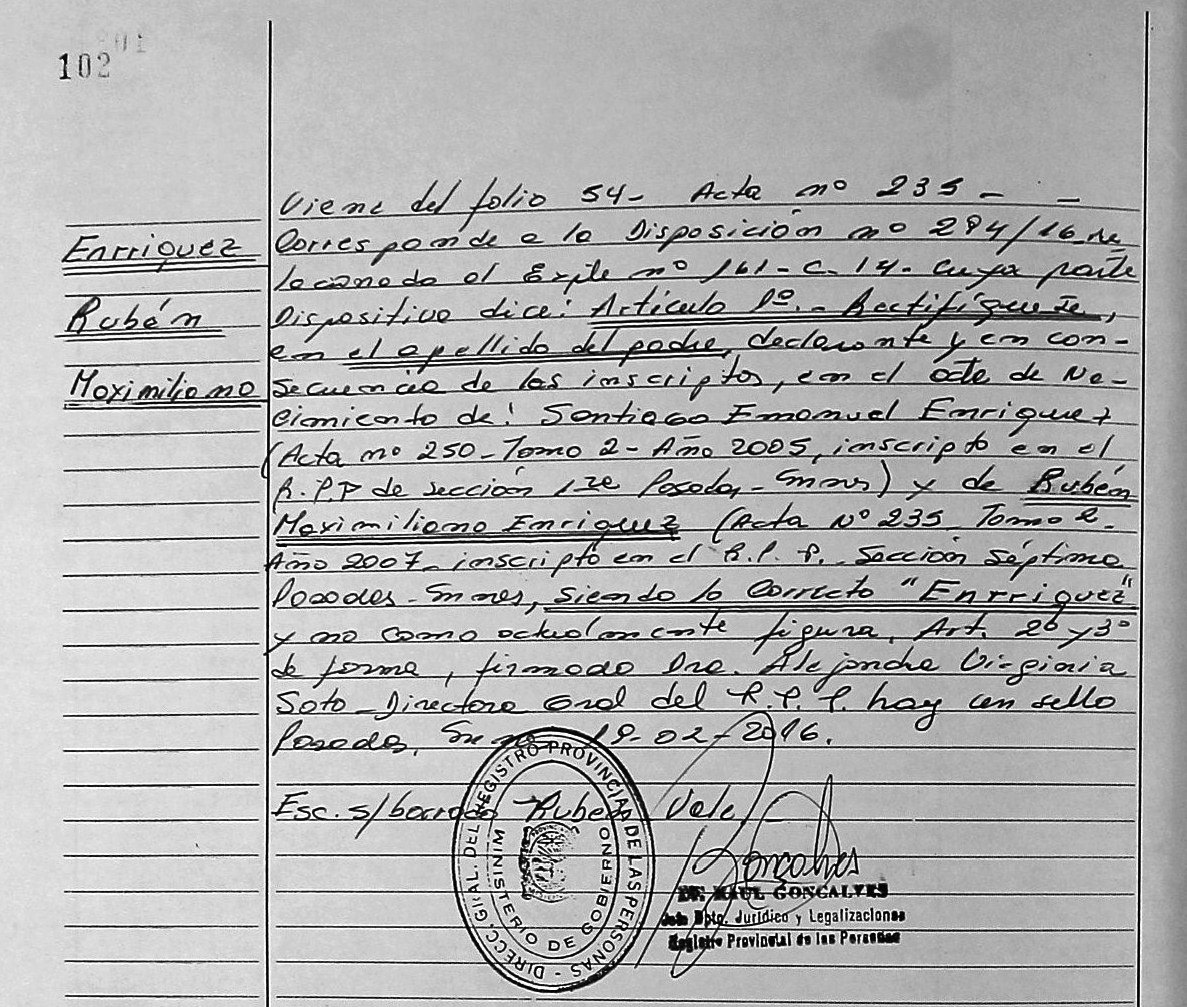 102
01
Enrriquez
Rubén
Maximiliano
Viene del folio 54- Acta nº 235 - -
Corresponde a la Disposición nº 294/16 Re
lacionado al Expte nº 161-C-14- Cuya parte
Dispositiva dice: Artículo 1º.- Rectifíquese,
en el apellido del padre, declarante y en con-
secuencia de los inscriptos, en el acta de Na-
cimiento de: Santiago Emanuel Enriquez
(Acta nº 250-Tomo 2- Año 2005, inscripto en el
R.P.P de sección 1ra Posadas-Mnes) y de Rubén
Maximiliano Enriquez (Acta Nº 235 Tomo 2-
Año 2007- inscripto en el R.P.P. Sección Séptima
Posadas-Mnes, siendo lo Correcto "Enrriquez"
y no como actualmente figura, Art. 2º y 3º
de forma, firmado Dra. Alejandra Virginia
Soto-Directora Gral del R.P.P. hay un sello
Posadas, Mnes 19-02-2016.
Esc. s/borrado Rubén Vale
DIRECC. GRAL. DEL REGISTRO PROVINCIAL DE LAS PERSONAS -
MINISTERIO DE GOBIERNO
Goncalves
Dr. RAUL GONCALVES
Jefe Dpto. Jurídico y Legalizaciones
Registro Provincial de las Personas